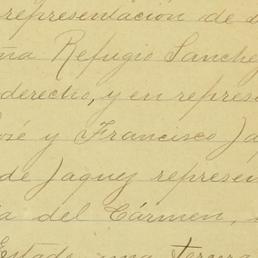 representación de
ña Refugio Sanche
derecho, y en repres
osé y Francisco Ja
de Jaquez represen
a del Cármen,
Estado, una tercera